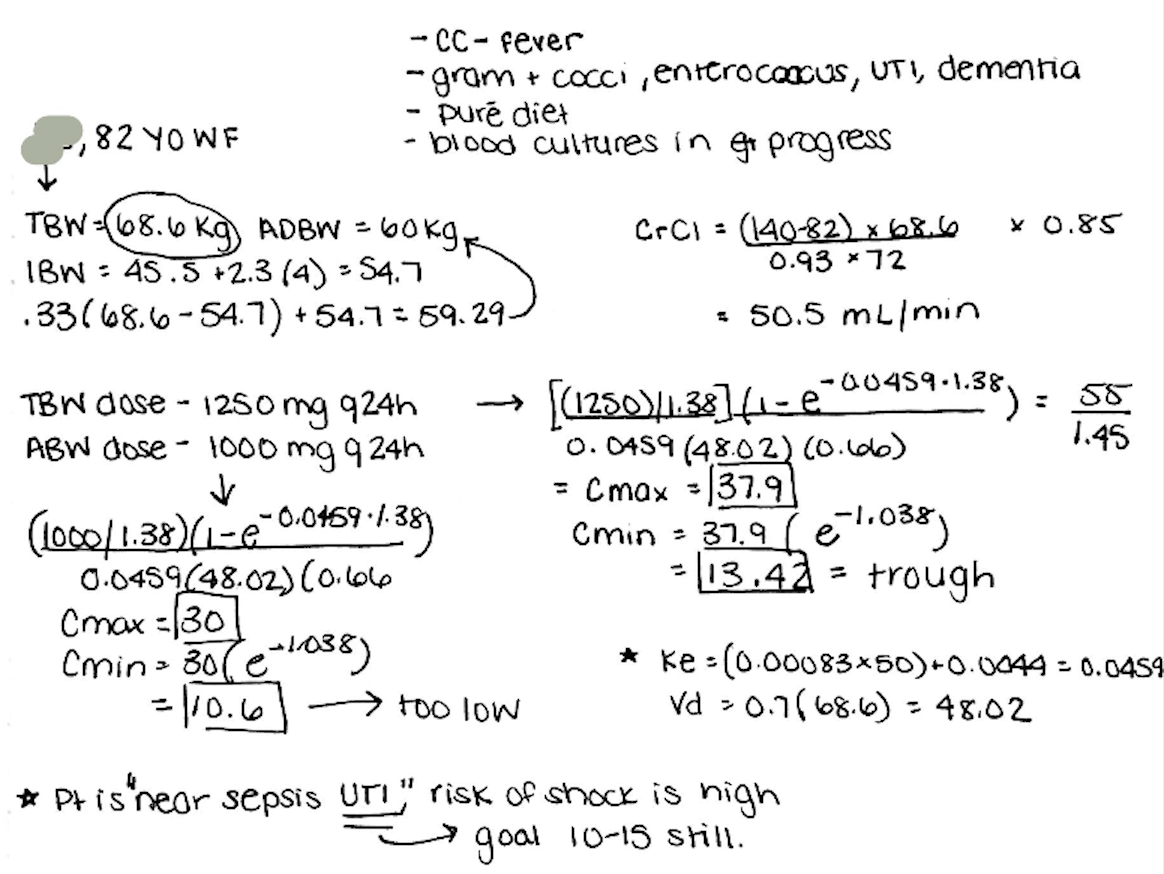 - CC - fever
- gram + cocci, enterococcus, UTI, dementia
- purē diet
- blood cultures in progress
, 82 YO WF
↓
TBW = 68.6 Kg ADBW = 60 Kg
IBW = 45.5 + 2.3 (4) = 54.7
.33(68.6 - 54.7) + 54.7 = 59.29
CrCl = (140-82) × 68.6 × 0.85
0.93 × 72
= 50.5 mL/min
TBW dose - 1250 mg q24h →
ABW dose - 1000 mg q24h
↓
(1000/1.38)(1-e^-0.0459·1.38)
0.0459(48.02)(0.66
Cmax = 30
Cmin = 30(e^-1.038)
= 10.6 → too low
[(1250)/1.38](1-e^-0.0459·1.38) = 55
0.0459(48.02)(0.66) 1.45
= Cmax = 37.9
Cmin = 37.9(e^-1.038)
= 13.42 = trough
* Ke = (0.00083×50)+0.0044 = 0.0459
Vd = 0.7(68.6) = 48.02
* Pt is "near sepsis UTI," risk of shock is high
→ goal 10-15 still.